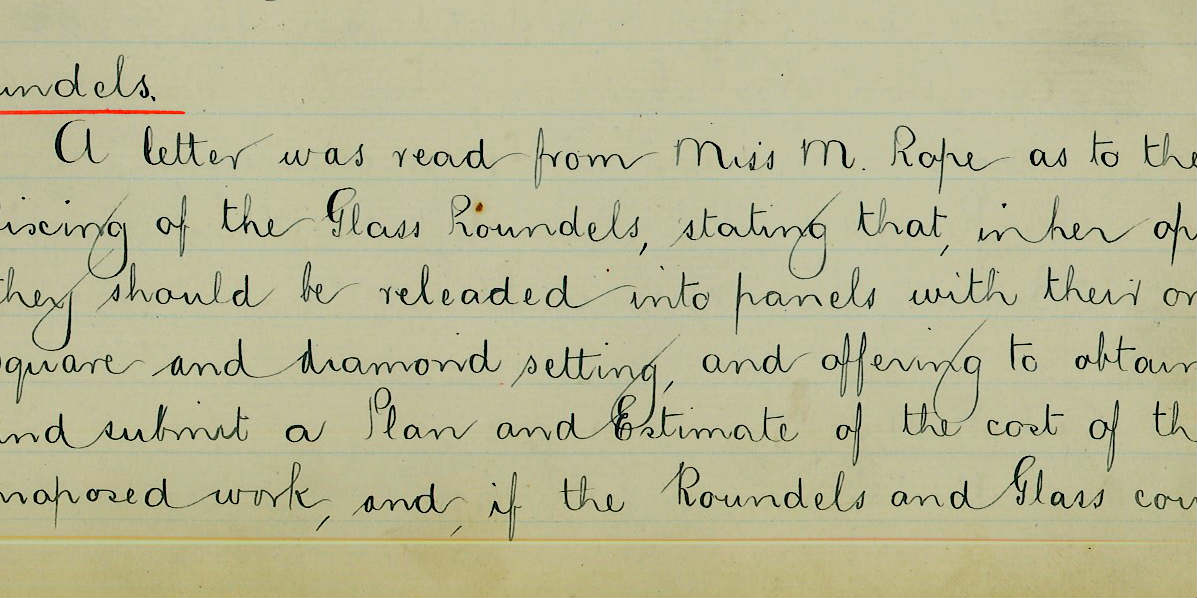 undels.
A letter was read from Miss M. Rope as to the
ixing of the Glass Roundels, stating that, in her op
they should be releaded into panels with their or
square and diamond setting, and offering to obtain
and submit a Plan and Estimate of the cost of th
proposed work, and, if the Roundels and Glass cou